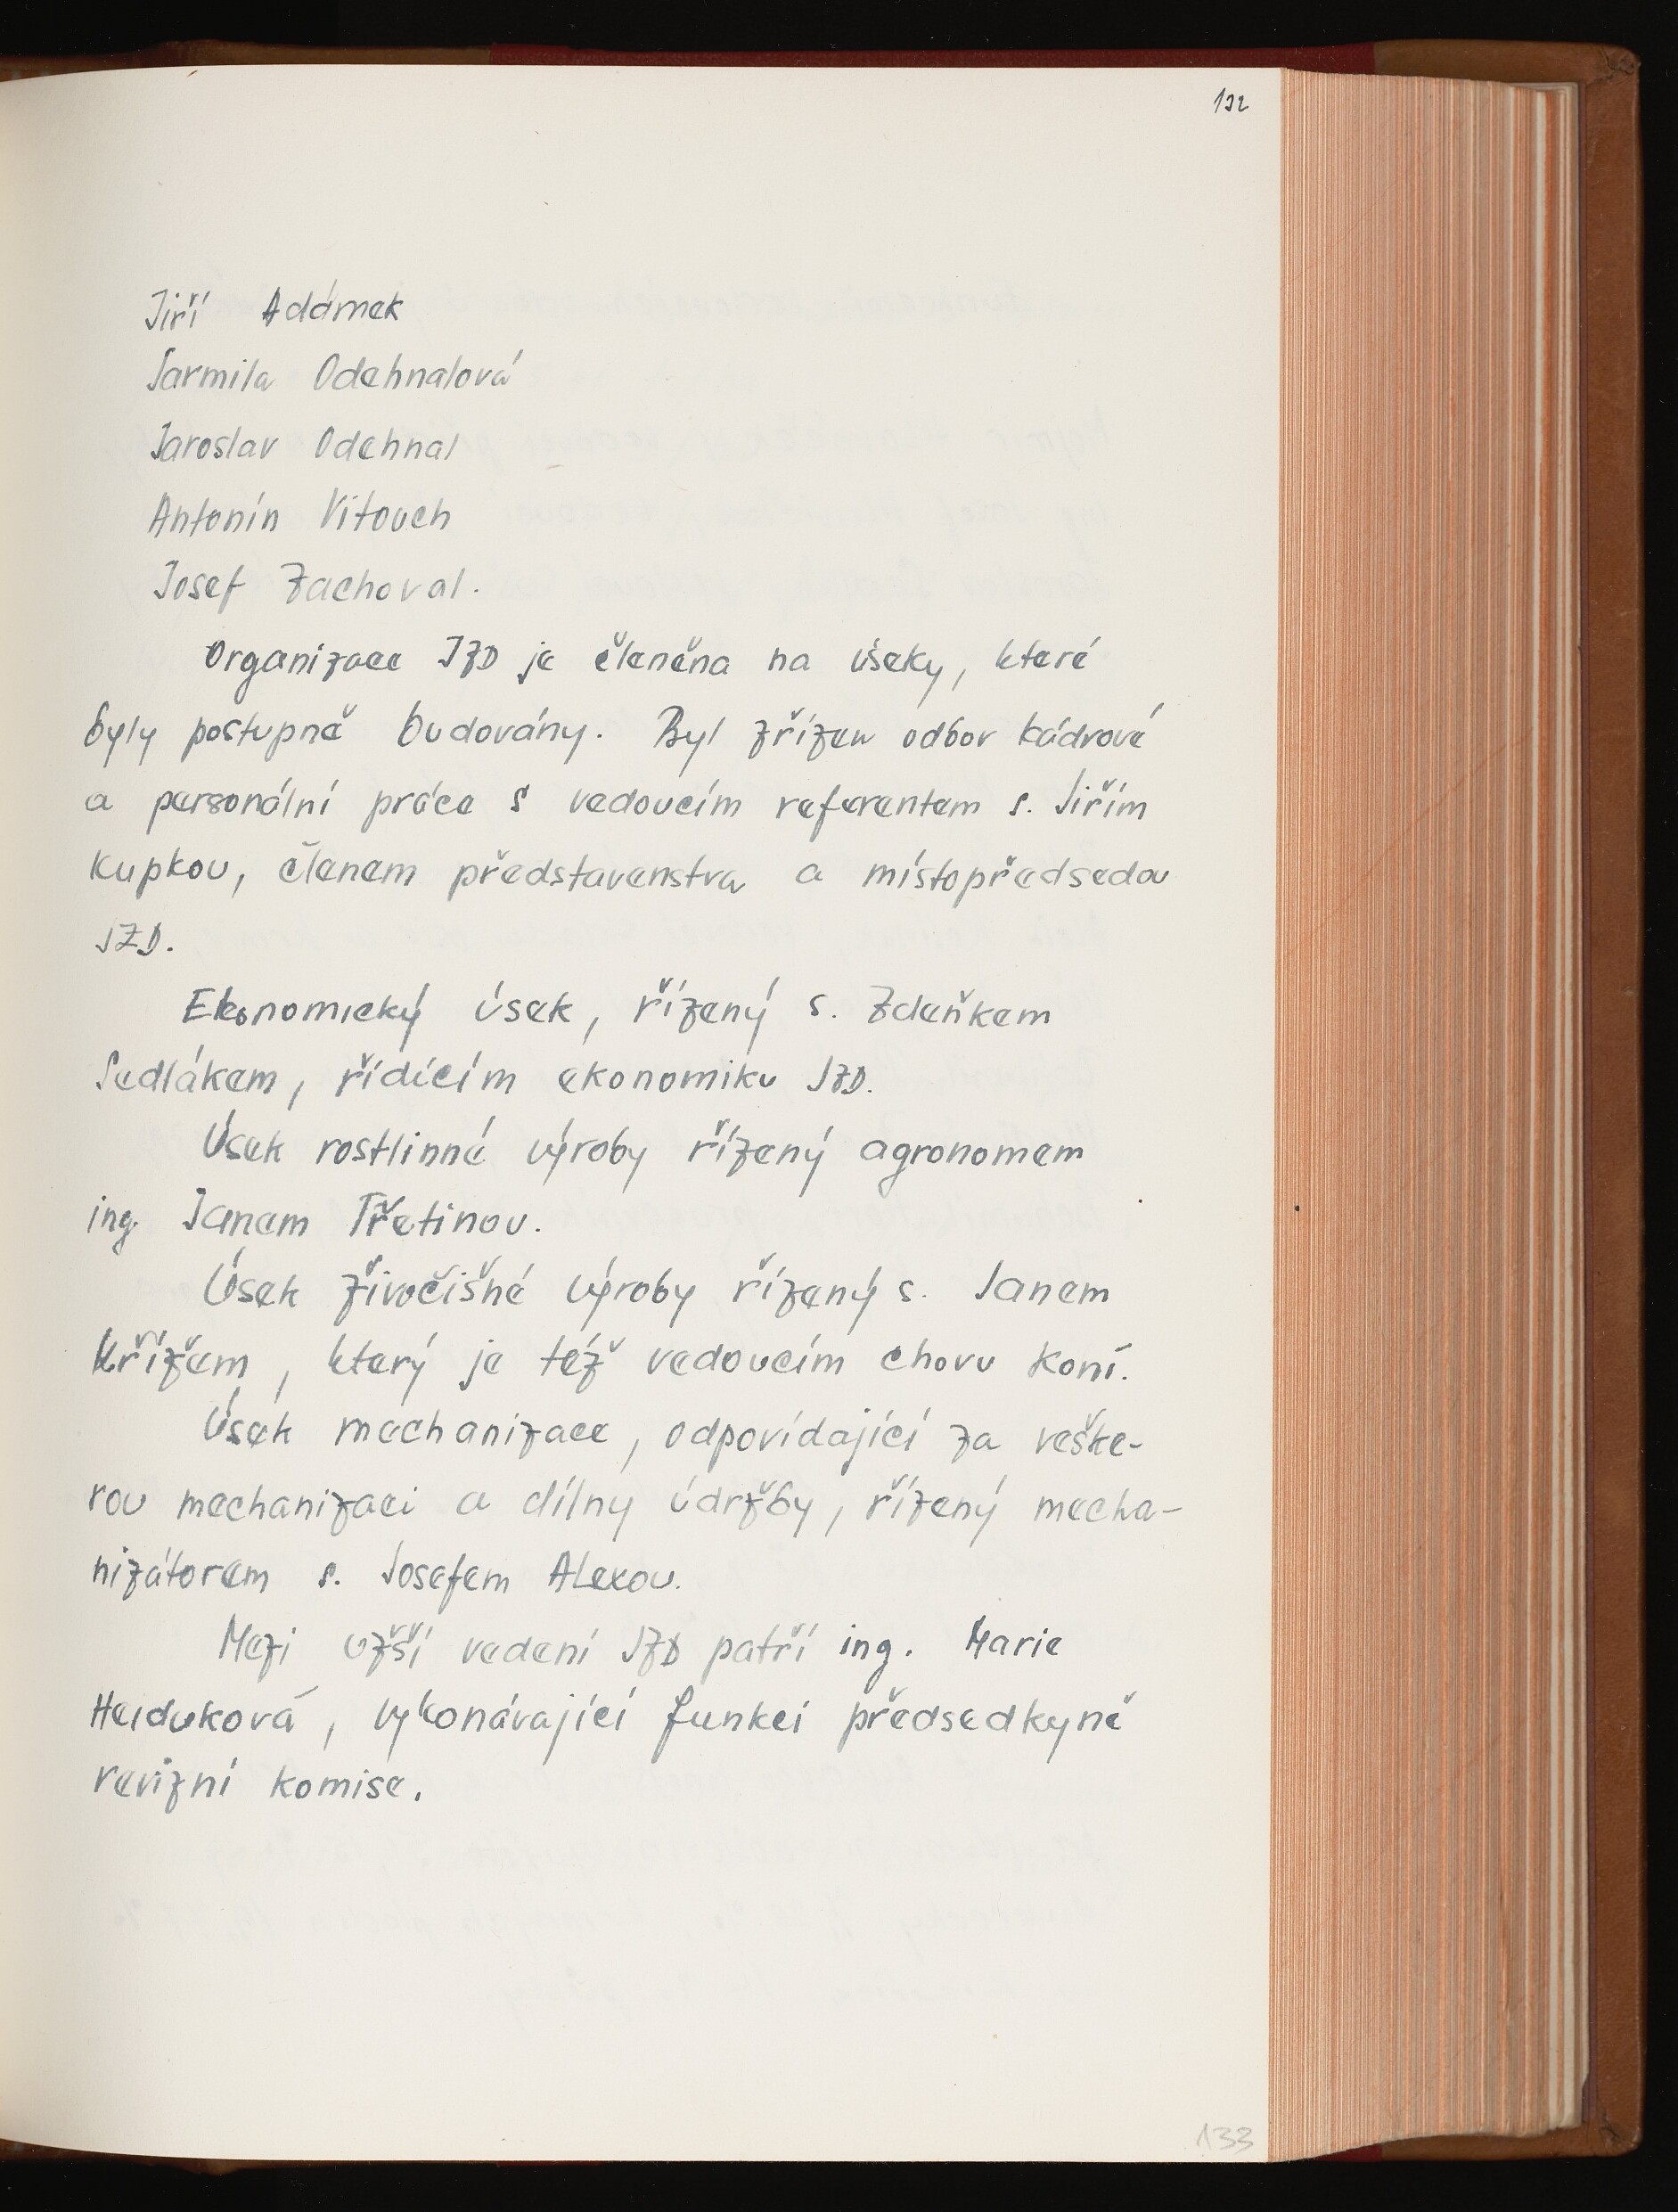 132
Jiří Adámek
Jarmila Odehnalová
Jaroslav Odehnal
Antonín Vitouch
Josef Zachoval.
Organizace JZD je členěna na úseky, které
byly postupně budovány. Byl zřízen odbor kádrové
a personální práce s vedoucím referentem s. Jiřím
Kupkou, členem představenstva a místopředsedou
JZD.
Ekonomický úsek, řízený s. Zdeňkem
Sedlákem, řídícím ekonomiku JZD.
Úsek rostlinné výroby řízený agronomem
ing. Janem Třetinou.
Úsek živočišné výroby řízený s. Janem
Křížem, který je též vedoucím chovu koní.
Úsek mechanizace, odpovídající za veške-
rou mechanizaci a dílny údržby, řízený mecha-
nizátorem s. Josefem Alexou.
Mezi užší vedení JZD patří ing. Marie
Heiduková, vykonávající funkci předsedkyně
revizní komise.
133